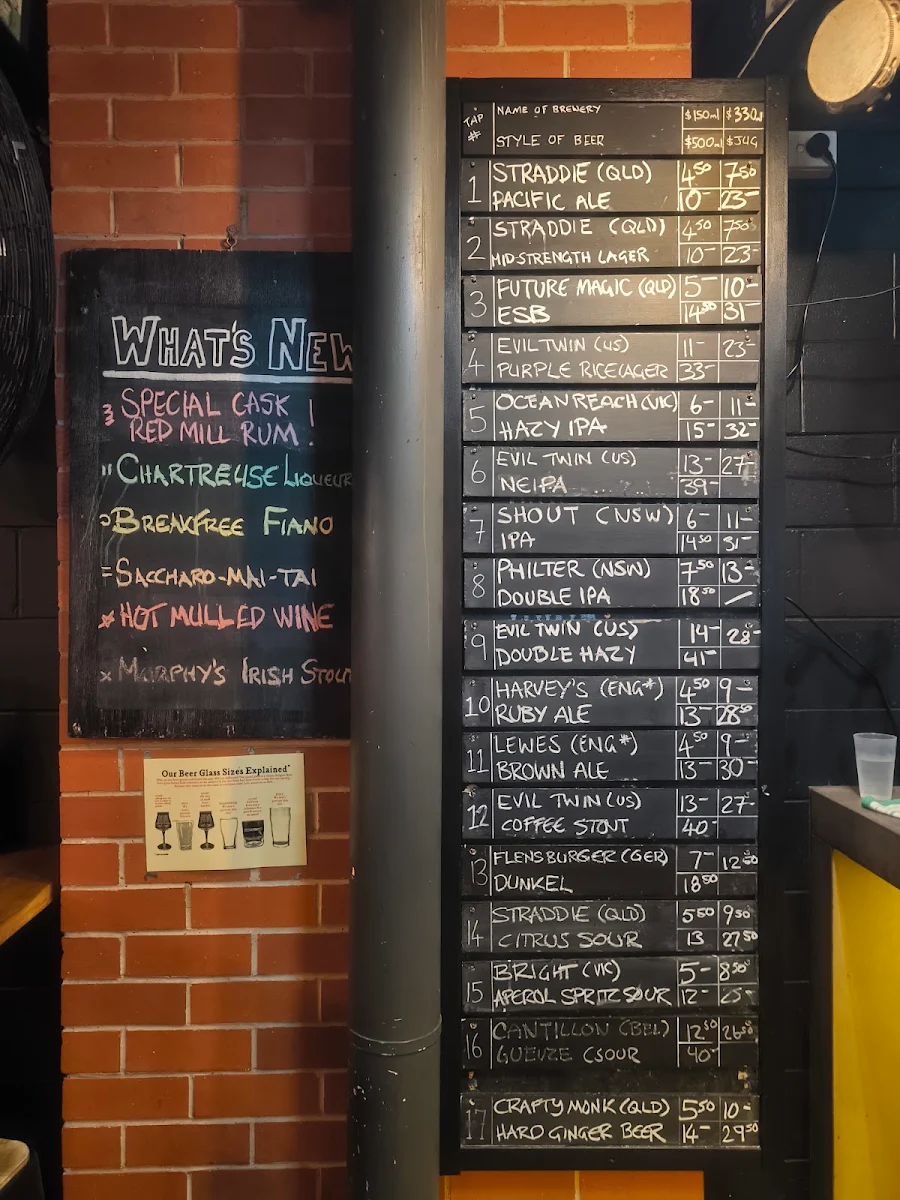 WHAT'S NEW
SPECIAL CASK !
RED MILL RUM !
CHARTREUSE LIQUEUR
BREAKFREE FIANO
SACCHARO-MAI-TAI
HOT MULLED WINE
MURPHY'S IRISH STOUT
Our Beer Glass Sizes Explained*
TAP # NAME OF BREWERY $150ml $330ml
STYLE OF BEER $500ml $JUG
1 STRADDIE (QLD) 4.50 7.50
PACIFIC ALE 10- 23-
2 STRADDIE (QLD) 4.50 7.50
MID-STRENGTH LAGER 10- 23-
3 FUTURE MAGIC (QLD) 5- 10-
ESB 14.50 31-
4 EVIL TWIN (US) 11- 23-
PURPLE RICE LAGER 33-
5 OCEAN REACH (VIC) 6- 11-
HAZY IPA 15- 32-
6 EVIL TWIN (US) 13- 27-
NEIPA 39-
7 SHOUT (NSW) 6- 11-
IPA 14.50 31-
8 PHILTER (NSW) 7.50 13-
DOUBLE IPA 18.50 /
9 EVIL TWIN (US) 14- 28-
DOUBLE HAZY 41-
10 HARVEY'S (ENG*) 4.50 9-
RUBY ALE 13- 28.50
11 LEWES (ENG*) 4.50 9-
BROWN ALE 13- 30-
12 EVIL TWIN (US) 13- 27-
COFFEE STOUT 40-
13 FLENSBURGER (GER) 7- 12.50
DUNKEL 18.50
14 STRADDIE (QLD) 5.50 9.50
CITRUS SOUR 13 27.50
15 BRIGHT (VIC) 5- 8.50
APEROL SPRITZ SOUR 12- 25-
16 CANTILLON (BEL) 12.50 26.50
GUEUZE (SOUR 40-
17 CRAFTY MONK (QLD) 5.50 10-
HARD GINGER BEER 14- 29.50